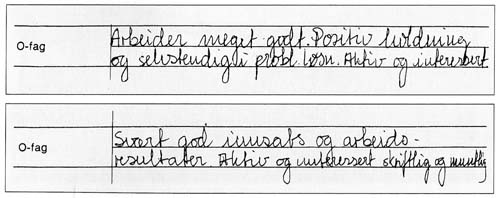 O-fag
Arbeider meget godt. Positiv holdning
og selvstendig i probl.løsn. Aktiv og interessert.
O-fag
Svært god innsats og arbeids-
resultater. Aktiv og interessert skriftlig og muntlig